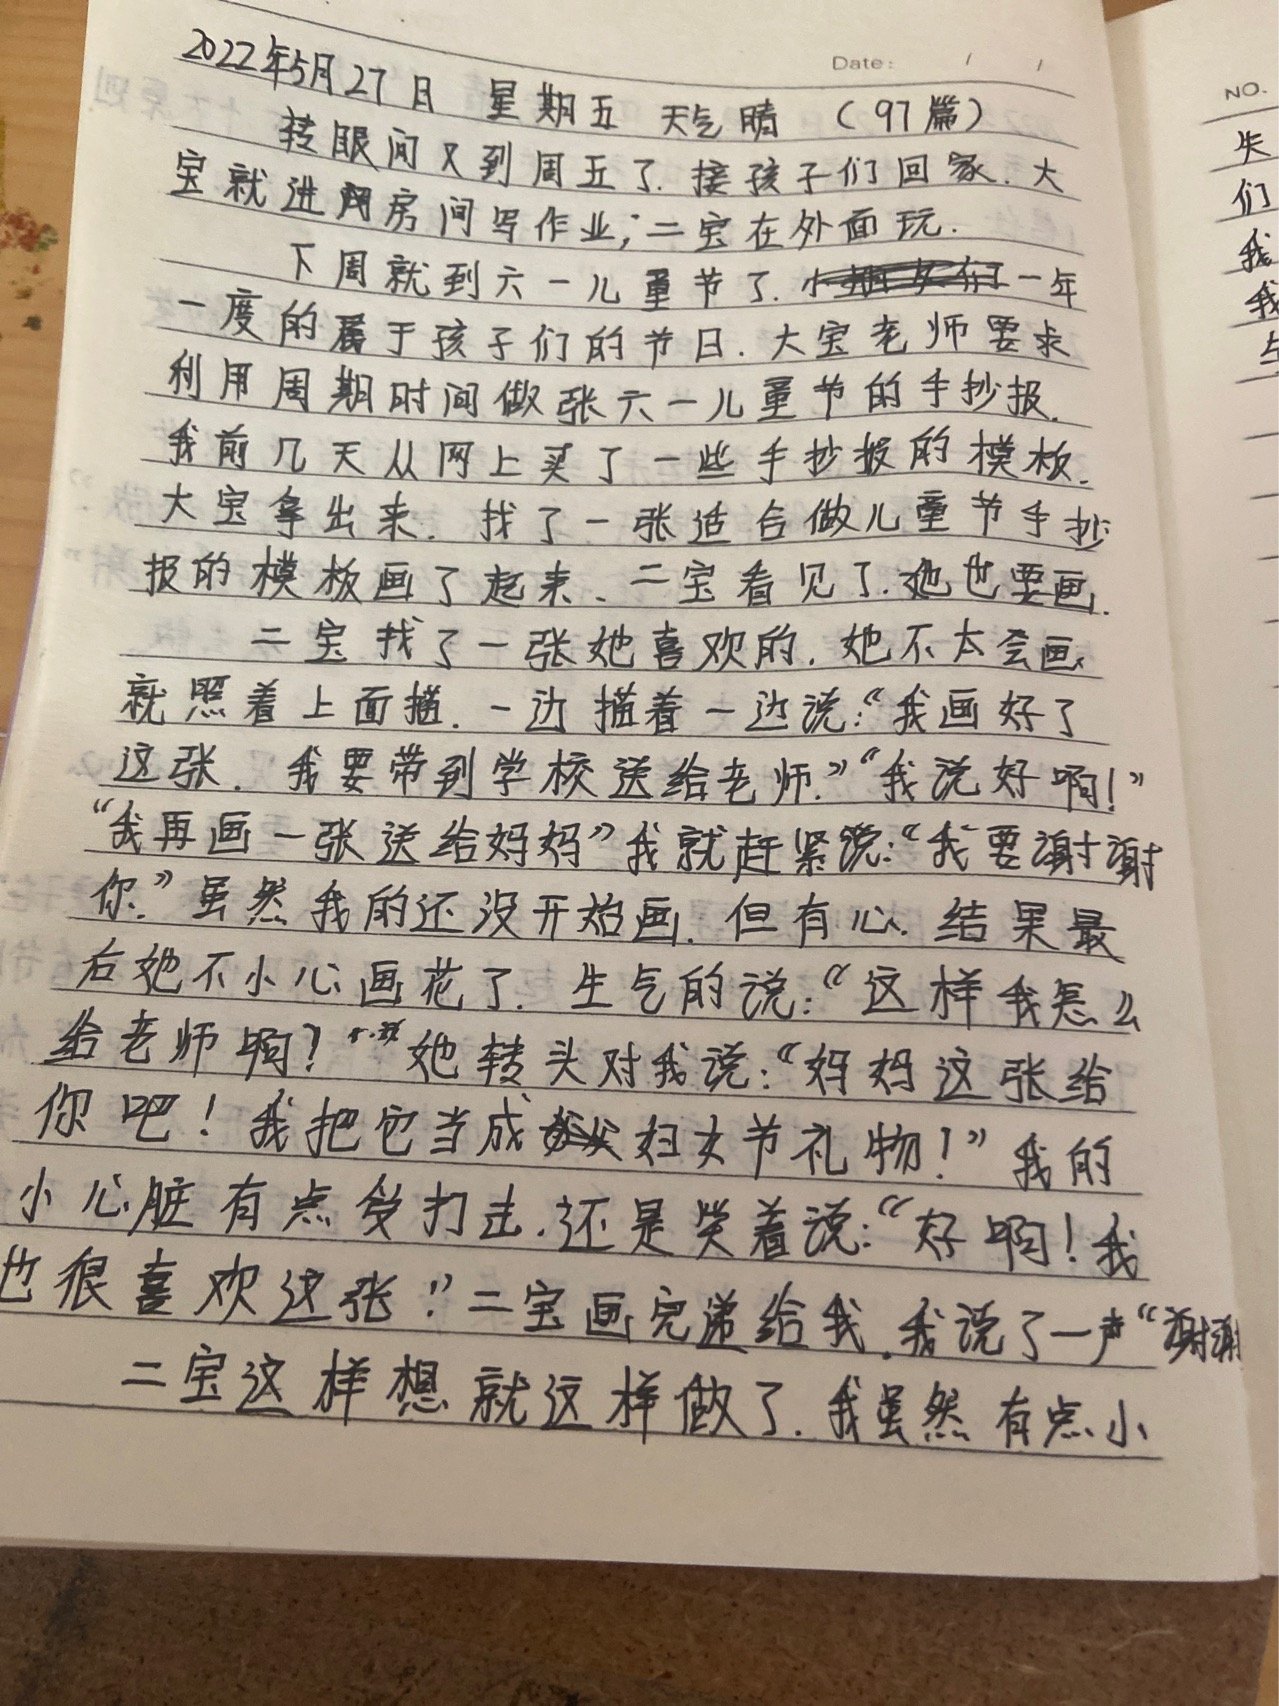 Date: / /
2022年5月27日 星期五 天气晴 (97篇)
转眼间又到周五了.接孩子们回家.大
宝就进房间写作业;二宝在外面玩.
下周就到六一儿童节了.一年
一度的属于孩子们的节日.大宝老师要求
利用周期时间做张六一儿童节的手抄报.
我前几天从网上买了一些手抄报的模板.
大宝拿出来.找了一张适合做儿童节手抄
报的模板画了起来、二宝看见了.她也要画.
二宝找了一张她喜欢的.她不太会画.
就照着上面描.一边描着一边说:“我画好了
这张.我要带到学校送给老师.”“我说好啊!”
“我再画一张送给妈妈”我就赶紧说:“我要谢谢
你.”虽然我的还没开始画.但有心.结果最
后她不小心画花了.生气的说:“这样我怎么
给老师啊?”她转头对我说:“妈妈这张给
你吧!我把它当成妇女节礼物!”我的
小心脏有点受打击.还是笑着说:“好啊!我
也很喜欢这张!”二宝画完递给我.我说了一声“谢谢
二宝这样想就这样做了.我虽然有点小
NO.
失
们
我
我